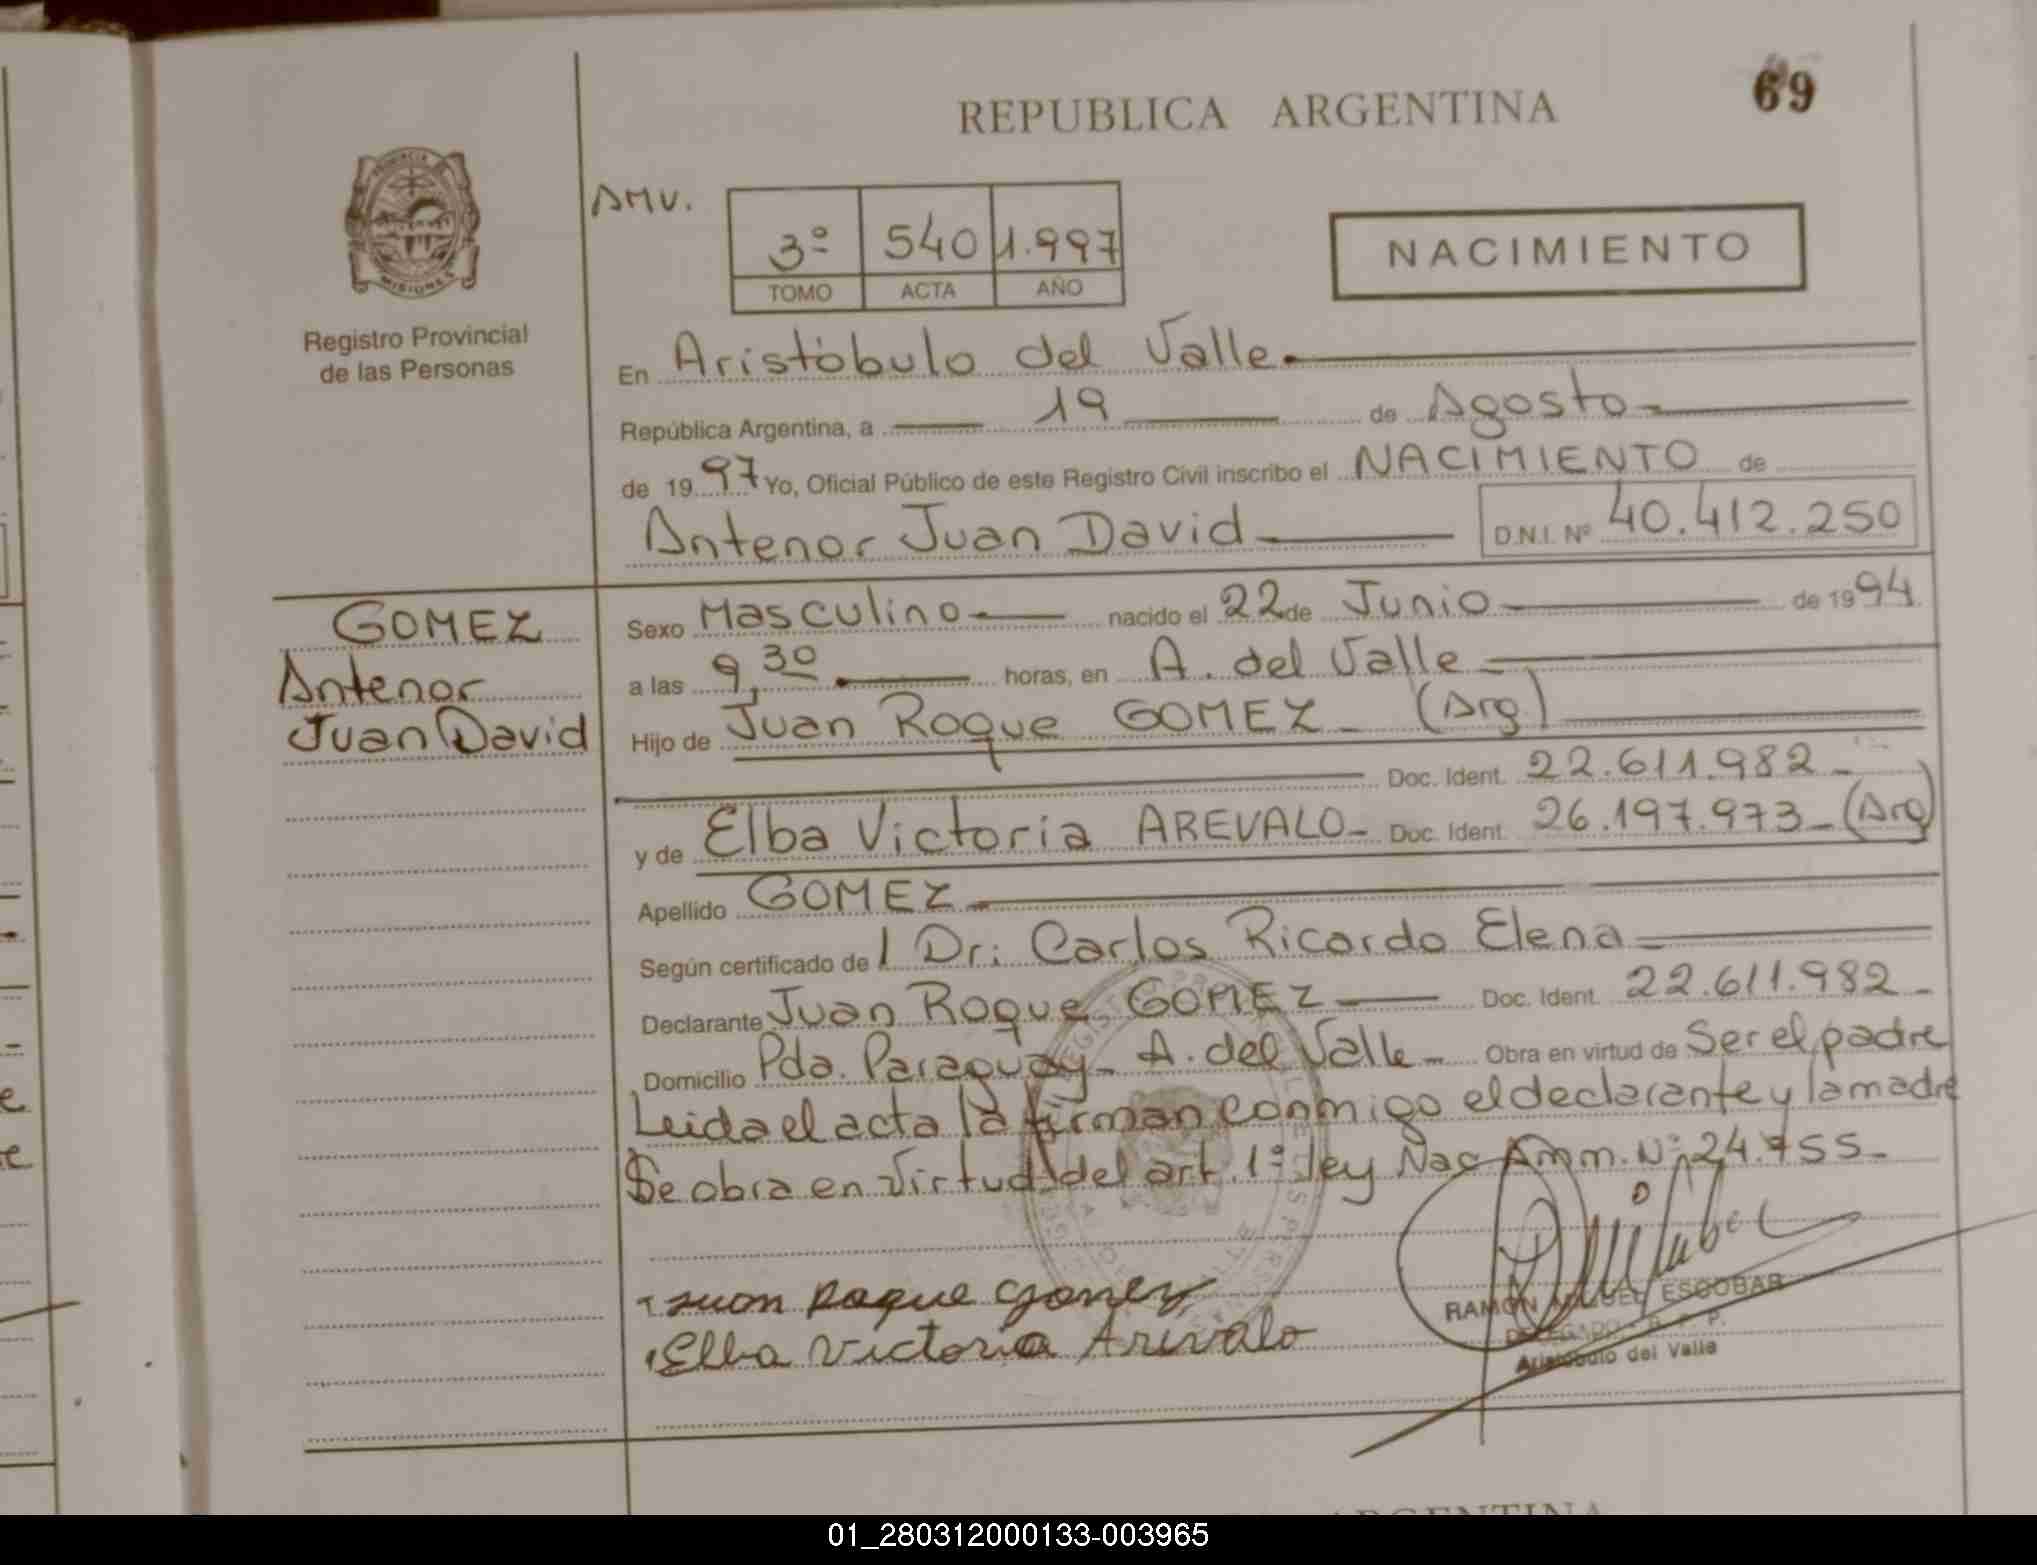 69
REPUBLICA ARGENTINA
PROVINCIA
MISIONES
Registro Provincial
de las Personas
AMV.
3º 540 1.997
TOMO ACTA AÑO
NACIMIENTO
En Aristóbulo del Valle.
República Argentina, a 19 de Agosto
de 1997 Yo, Oficial Público de este Registro Civil inscribo el NACIMIENTO de
Antenor Juan David D.N.I. Nº 40.412.250
GOMEZ
Antenor
Juan David
Sexo Masculino nacido el 22 de Junio de 1994.
a las 9,30 horas, en A. del Valle
Hijo de Juan Roque GOMEZ (Arg)
Doc. Ident. 22.611.982
y de Elba Victoria AREVALO Doc. Ident. 26.197.973 (Arg)
Apellido GOMEZ
Según certificado del Dr: Carlos Ricardo Elena
Declarante Juan Roque GOMEZ Doc. Ident. 22.611.982
Domicilio Pda. Paraguay A. del Valle Obra en virtud de Ser el padre
Leida el acta la firman conmigo el declarante y la madre
Se obra en virtud del art. 1º ley Nac Nº 24.755
Juan Roque Gomez
Elba Victoria Arevalo
RAMON MIGUEL ESCOBAR
DELEGADO R. P. P.
Aristóbulo del Valle
ARGENTINA
01_280312000133-003965